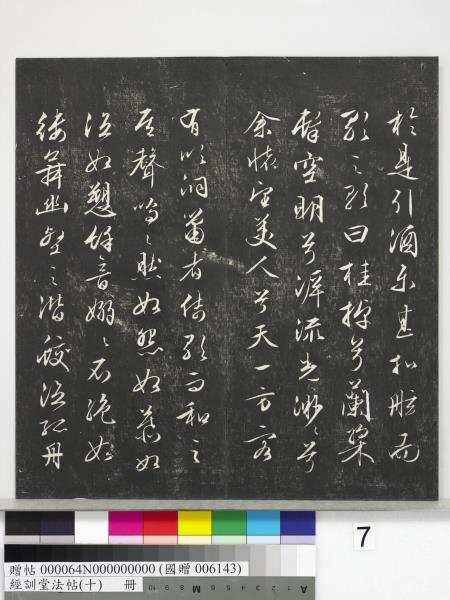 於是飲酒樂甚扣舷而
歌之歌曰桂棹兮蘭槳
擊空明兮泝流光渺渺兮
余懷望美人兮天一方客
有吹洞簫者倚歌而和之
其聲嗚嗚然如怨如慕如
泣如愬餘音嫋嫋不絕如
縷舞幽壑之潛蛟泣孤舟
7
贈帖 000064N000000000 (國贈 006143)
經訓堂法帖(十) 冊